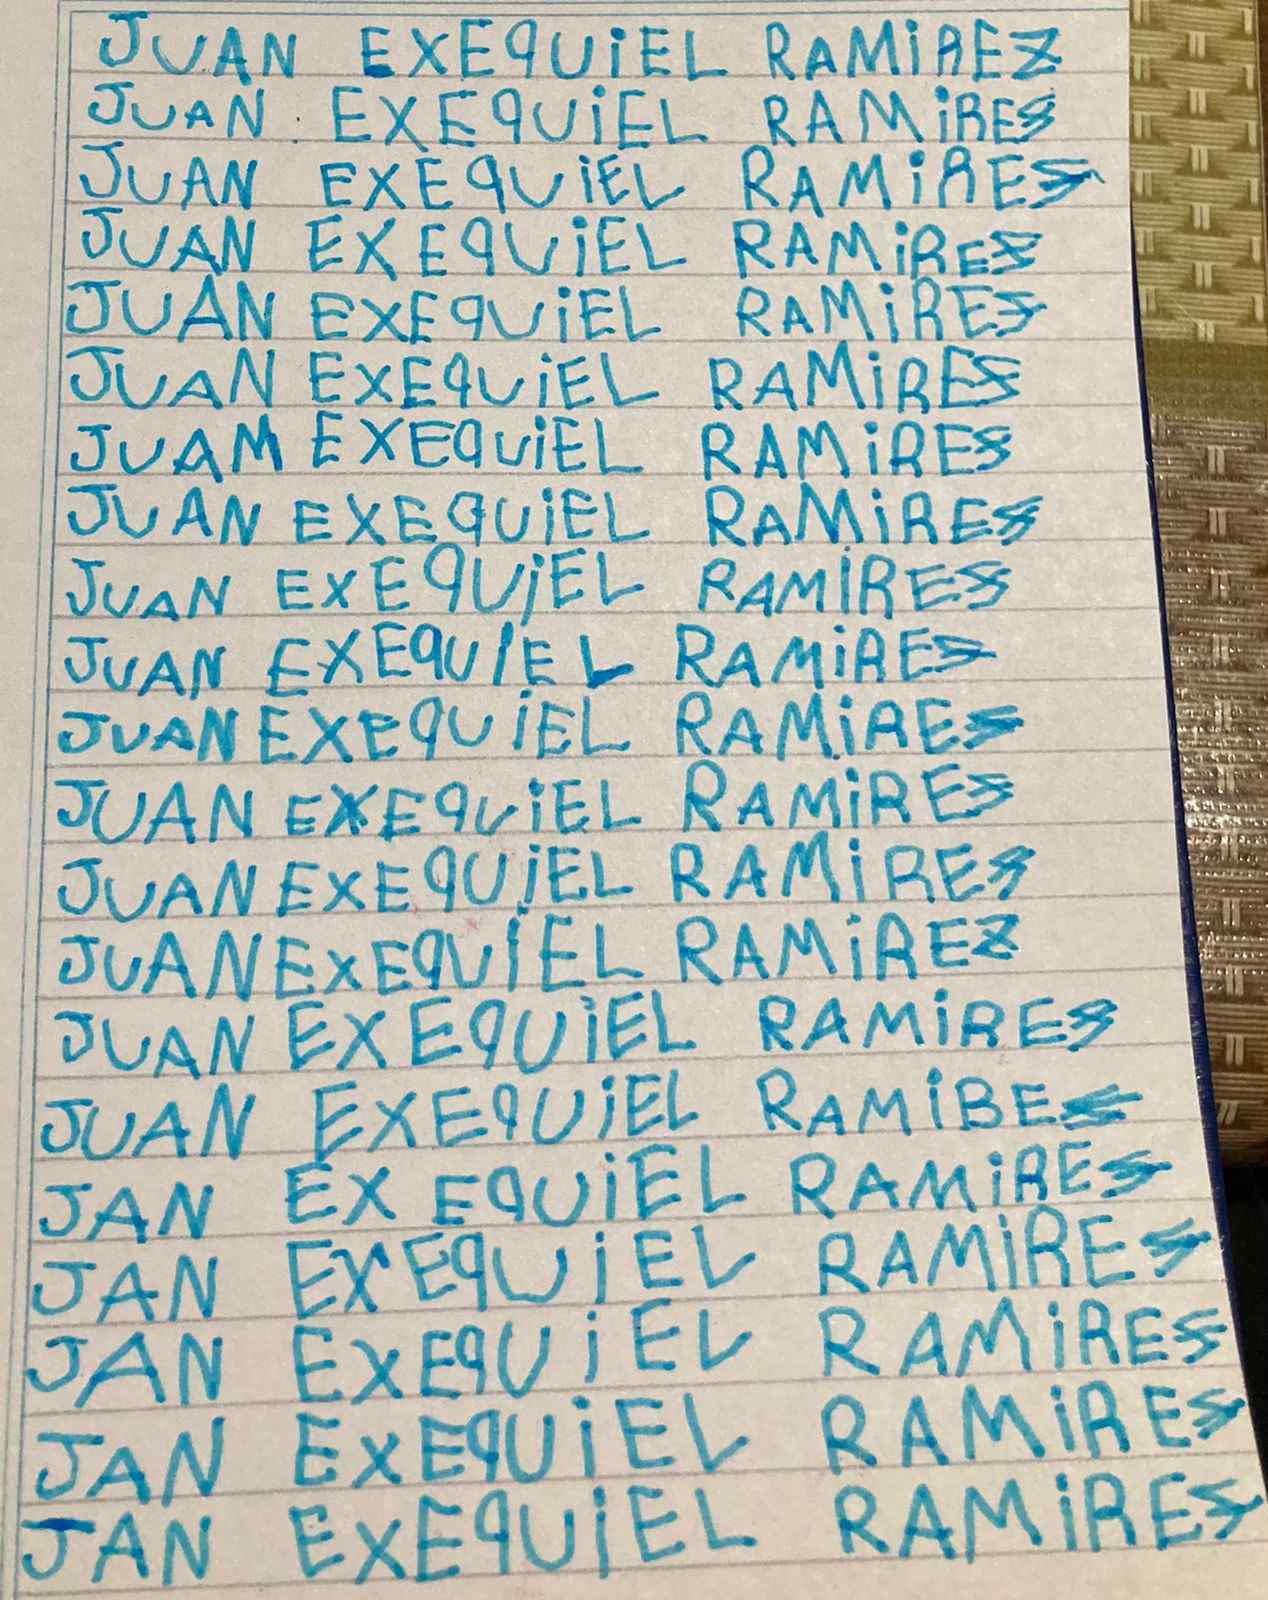 JUAN EXEQUiEL RAMiREZ
JUAN EXEQUiEL RAMiRES
JUAN EXEQUiEL RAMiRES
JUAN EXEQUiEL RAMiRES
JUAN EXEQUiEL RAMiRES
JUAN EXEQUiEL RAMiRES
JUAM EXEQUiEL RAMiRES
JUAN EXEQUiEL RAMiRES
JUAN EXEQUiEL RAMiRES
JUAN EXEQUIEL RAMiRES
JUAN EXEQUiEL RAMiRES
JUAN EXEQUiEL RAMiRES
JUAN EXEQUiEL RAMiRES
JUAN EXEQUiEL RAMiREZ
JUAN EXEQUiEL RAMiRES
JUAN EXEQUiEL RAMiBES
JAN EXEQUiEL RAMiRES
JAN EXEQUiEL RAMiRES
JAN EXEQUiEL RAMiRES
JAN EXEQUiEL RAMiRES
JAN EXEQUiEL RAMiRES